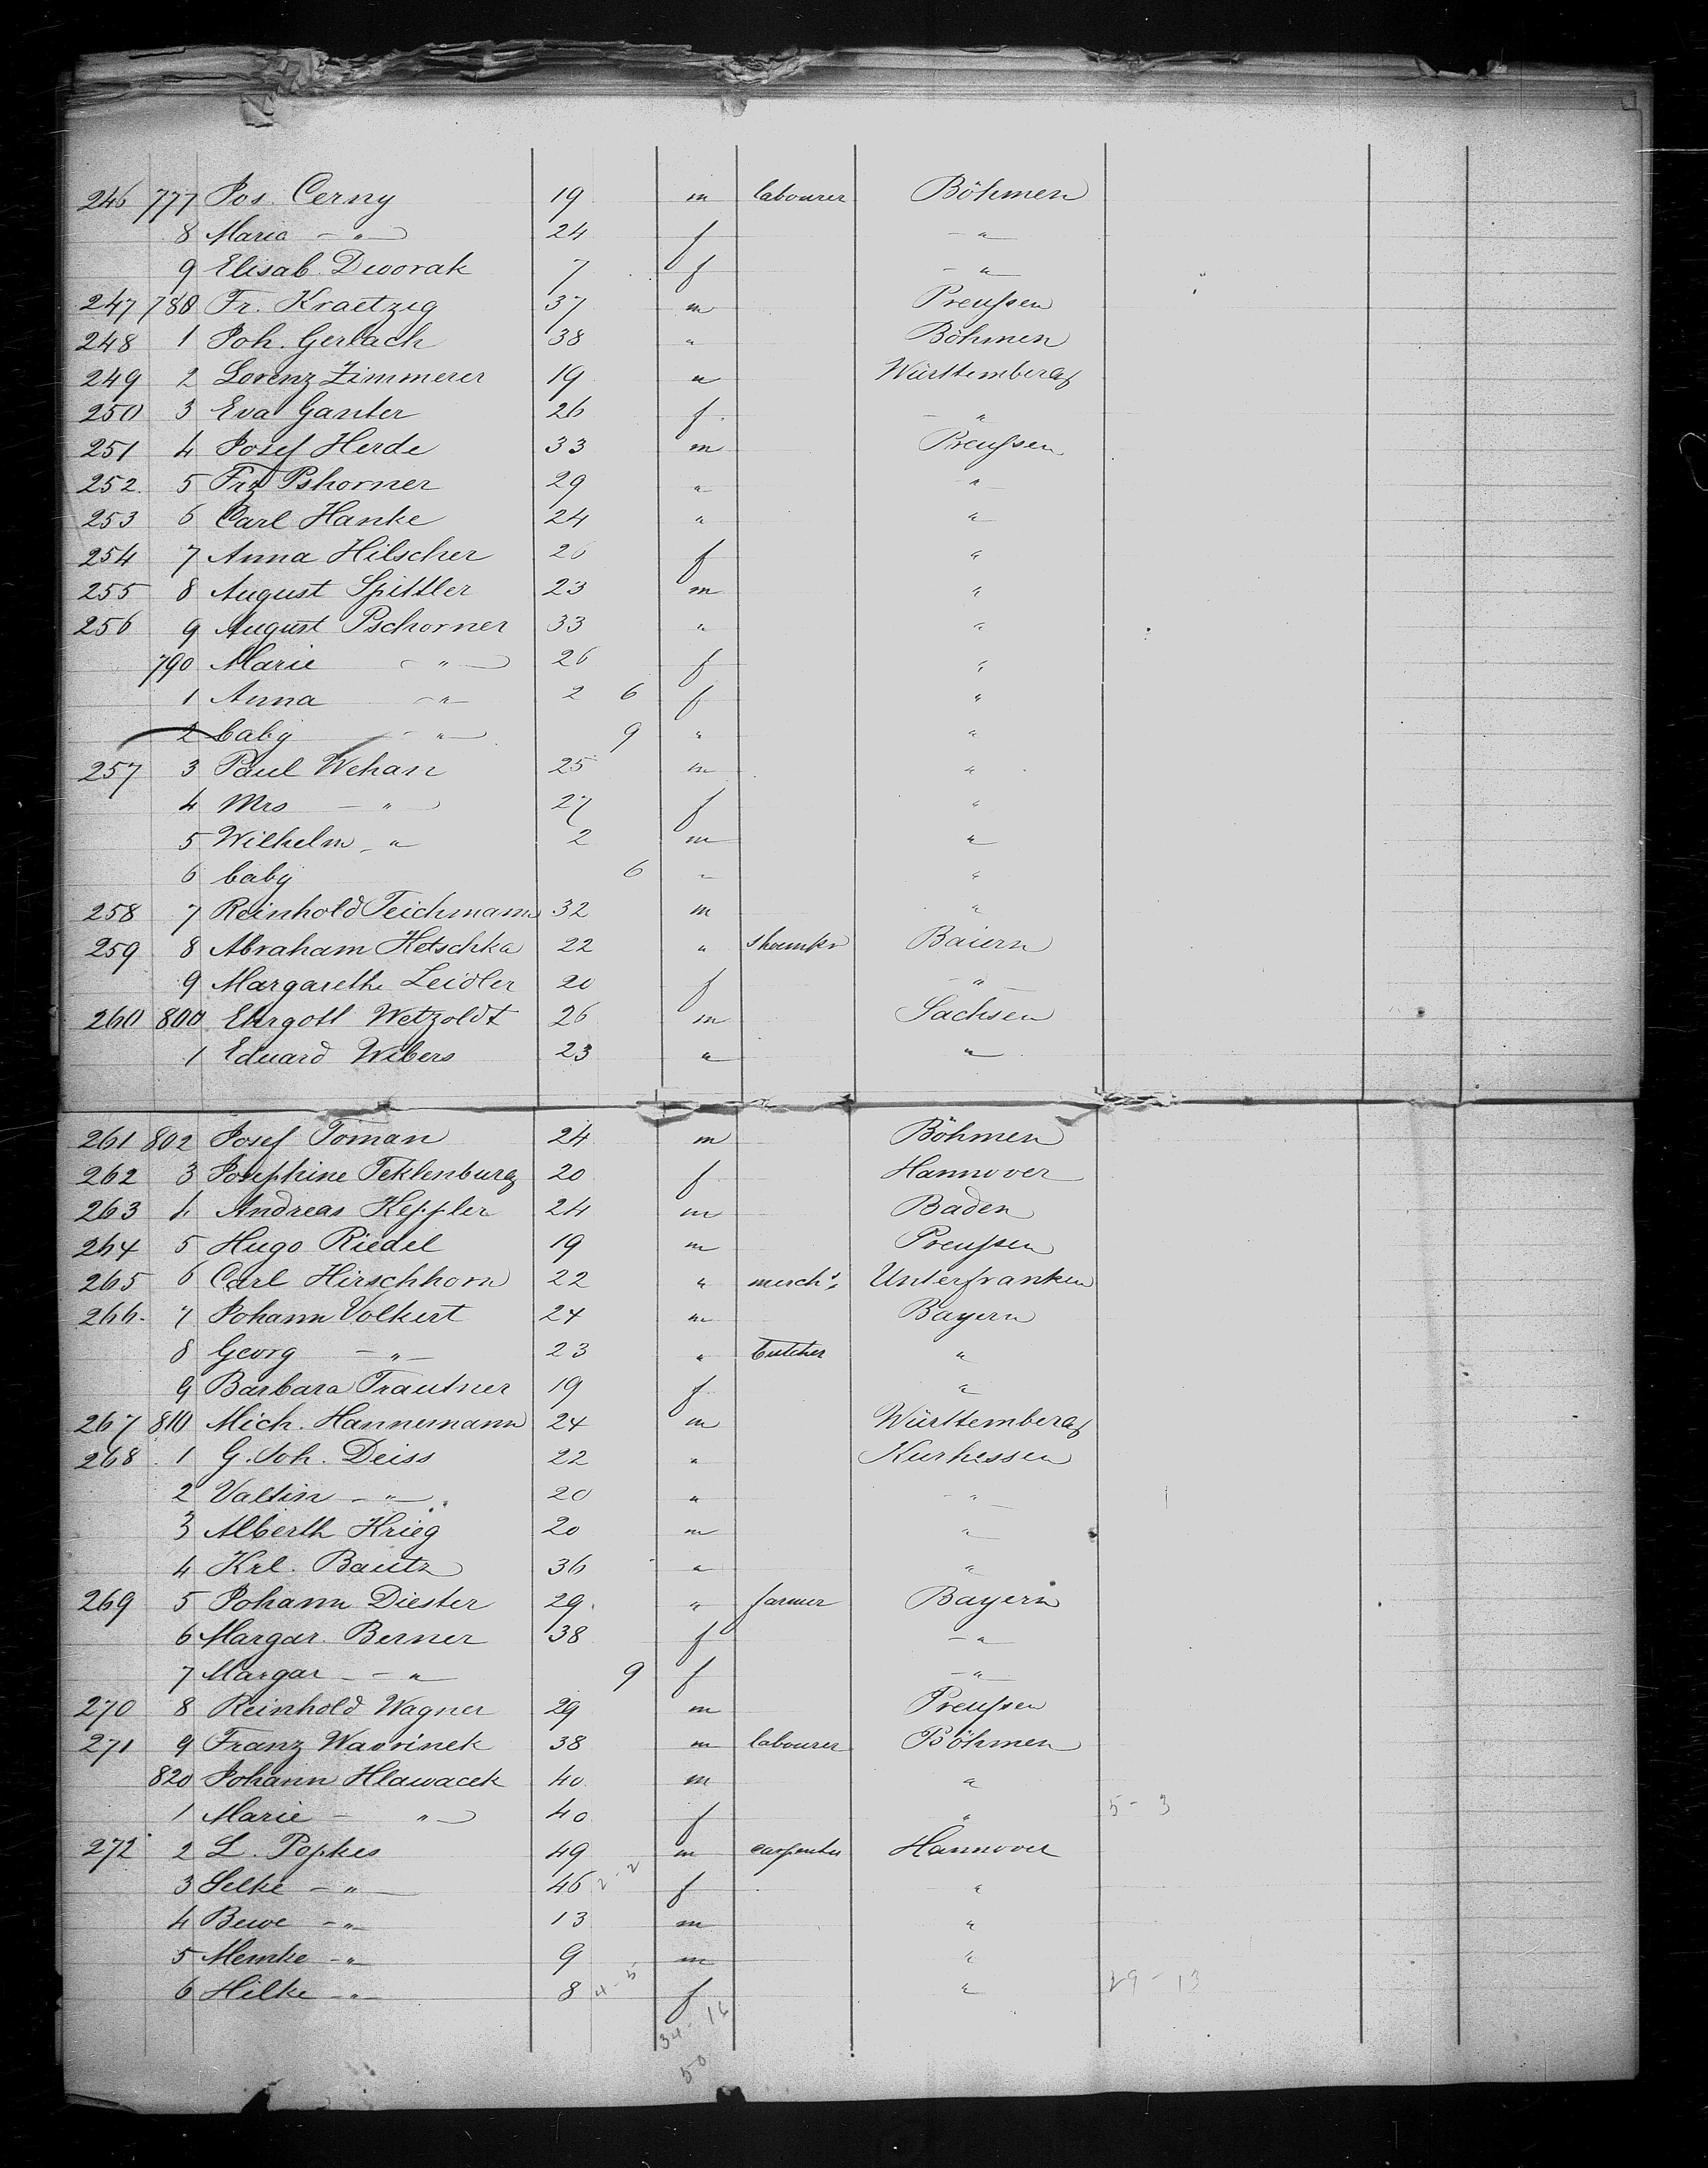 246 777 Jos. Cerny 19 m labourer Böhmen
8 Maria — " — 24 f — " —
9 Elisab. Dworak 7 f — " —
247 780 Fr. Kraetzig 37 m Preußen
248 1 Joh. Gerlach 38 " Böhmen
249 2 Lorenz Zimmerer 19 " Württemberg
250 3 Eva Ganter 26 f — " —
251 4 Josef Herde 33 m Preußen
252. 5 Frz Pshorner 29 " — " —
253 6 Carl Hanke 24 " "
254 7 Anna Hilscher 26 f "
255 8 August Spittler 23 m "
256 9 August Pschorner 33 " "
790 Marie — " — 26 f "
1 Anna — " — 2 6 f "
2 baby — " — 9 " "
257 3 Paul Wehan 25 m "
4 Mrs — " — 27 f "
5 Wilhelm — " 2 m "
6 baby 6 " "
258 7 Reinhold Teichmann 32 m "
259 8 Abraham Hetschka 22 " shoemkr Baiern
9 Margarethe Zeidler 20 f — " —
260 800 Ehrgott Wetzoldt 26 m Sachsen
1 Eduard Wibers 23 " "
261 802 Josef Toman 24 m Böhmen
262 3 Josephine Teklenburg 20 f Hannover
263 4 Andreas Keppler 24 m Baden
264 5 Hugo Riedel 19 m Preußen
265 6 Carl Hirschhorn 22 " merch't Unterfranken
266. 7 Johann Volkert 24 m Bayern
8 Georg — " — 23 " butcher "
9 Barbara Trautner 19 f "
267 810 Mich. Hannemann 24 m Württemberg
268 1 G. Joh. Deiss 22 " Kurhessen
2 Valtin — " — 20 " — " —
3 Alberth Krieg 20 m "
4 Krl. Bautz 36 " "
269 5 Johann Diester 29. " farmer Bayern
6 Margar. Berner 38 f — "
7 Margar — " — 9 f — " —
270 8 Reinhold Wagner 29 m Preußen
271 9 Franz Wavrinek 38 m labourer Böhmen
820 Johann Hlawacek 40 m "
1 Marie — " — 40 f " 5 - 3
272 2 L. Popkes 49 m carpenter Hannover
3 Selke — " — 46 2-2 f "
4 Bewe — " — 13 m "
5 Memke — " — 9 m "
6 Hilke — " — 8 4-5 f " 29 - 13
34 - 16
50